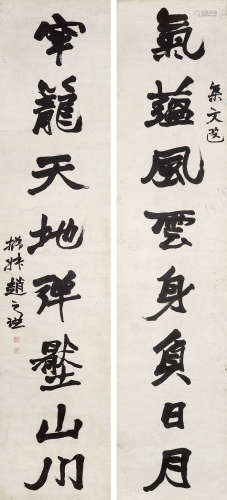 集文選
氣蘊風雲身負日月
牢籠天地彈壓山川
撝叔趙之謙